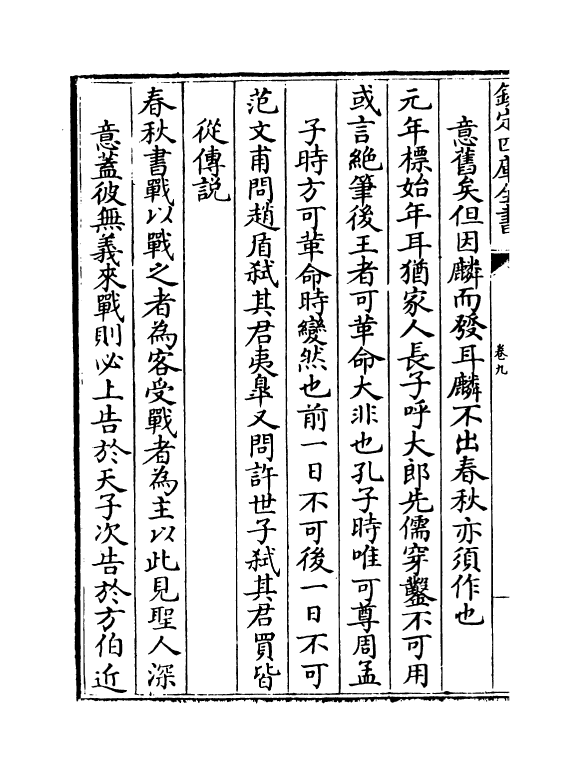 欽定四庫全書
卷九
意舊矣但因麟而發耳麟不出春秋亦須作也
元年標始年耳猶家人長子呼大郎先儒穿鑿不可用
或言絶筆後王者可革命大非也孔子時唯可尊周孟
子時方可革命時變然也前一日不可後一日不可
范文甫問趙盾弑其君夷臯又問許世子弑其君買皆
從傳説
春秋書戰以戰之者為客受戰者為主以此見聖人深
意蓋彼無義來戰則必上告於天子次告於方伯近